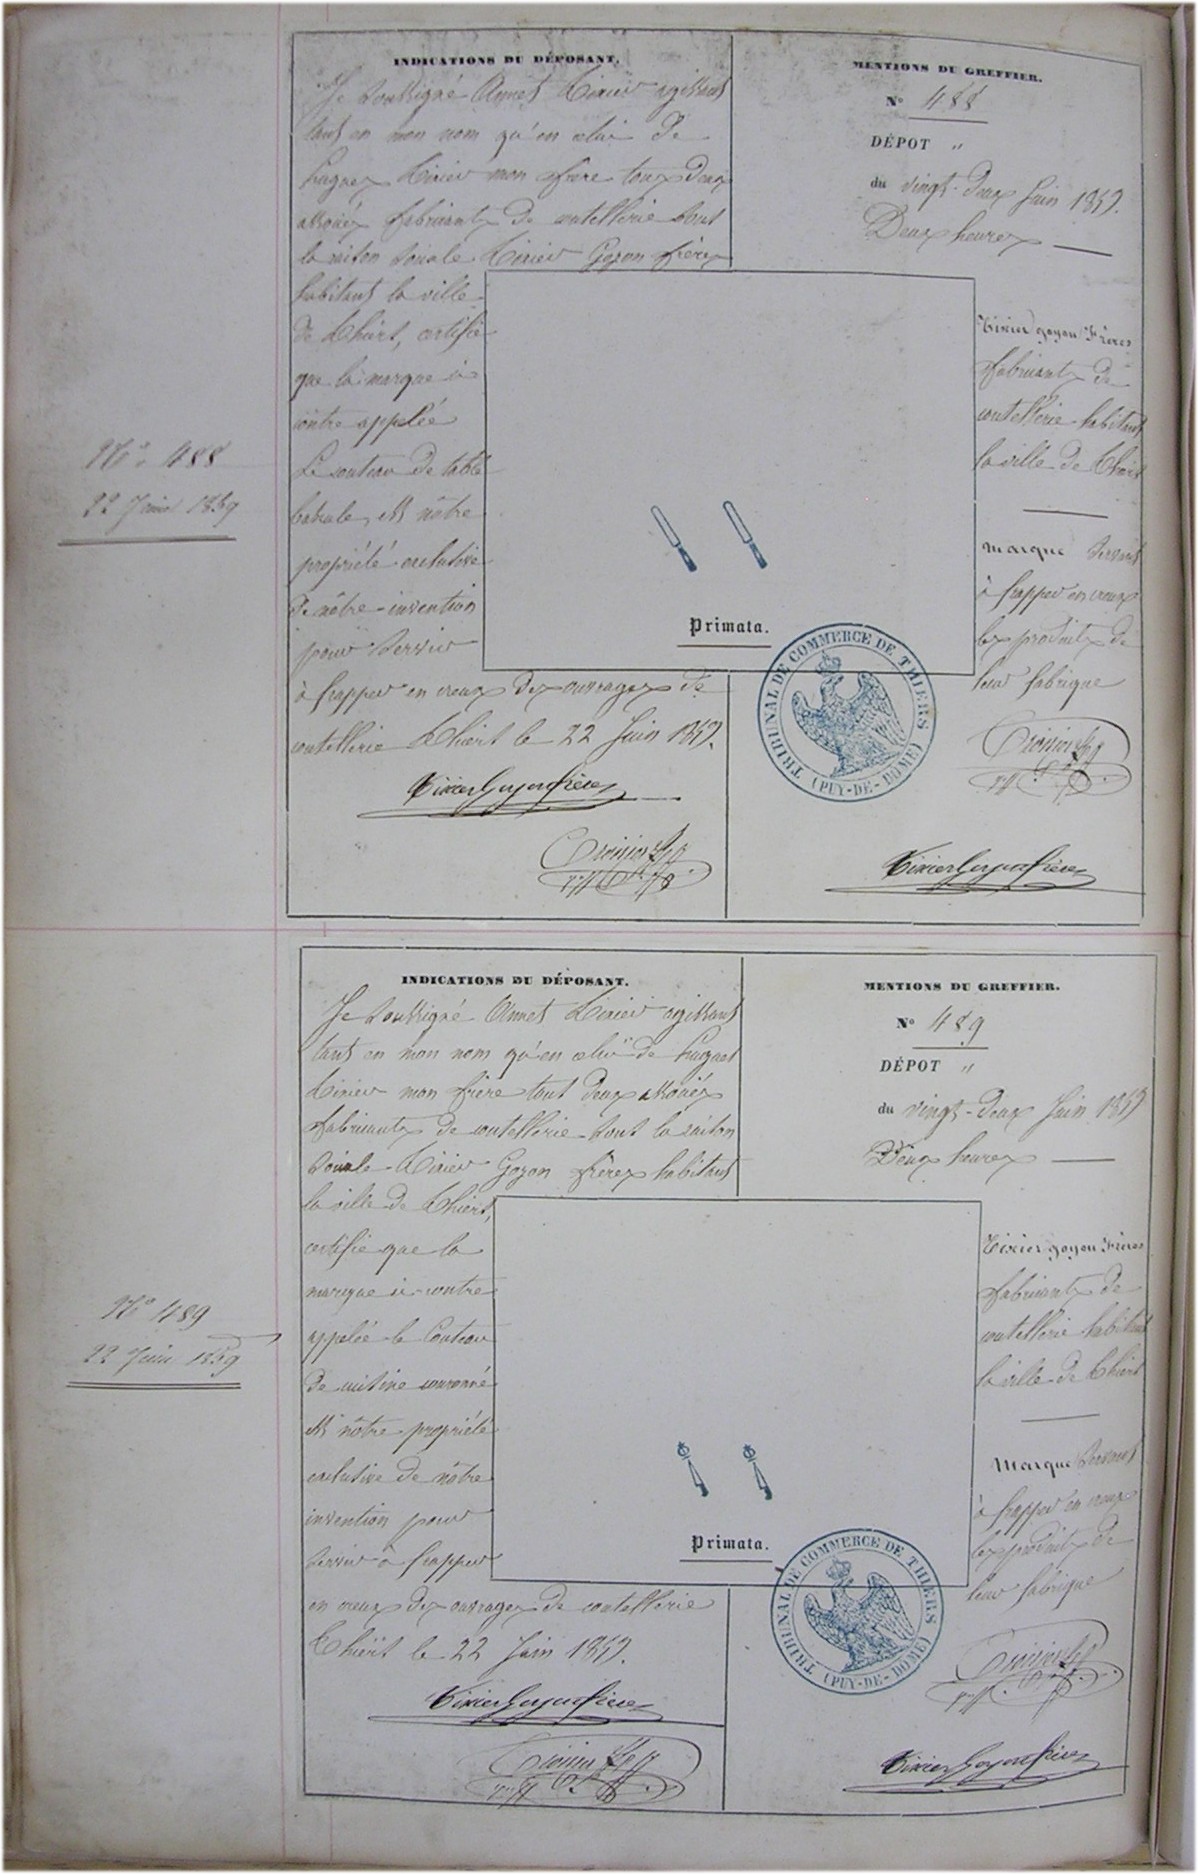 INDICATIONS DU DÉPOSANT.
Je soussigné Annet Tixier agissant
tant en mon nom qu'en celui de
Hugues Tixier mon frère tous deux
associés fabricants de coutellerie sous
la raison sociale Tixier Goyon frères
habitant la ville
de Thiers, certifie
que la marque ci
contre appelée
Le couteau de table
bascule, est nôtre
propriété exclusive
de nôtre invention
pour servir
à frapper en creux des ouvrages de
coutellerie Thiers le 22 Juin 1859.
Tixier Goyon frères
MENTIONS DU GREFFIER.
N° 488
DÉPOT "
du vingt-deux Juin 1859.
Deux heures
Tixier goyon Frères
fabricants de
coutellerie habitant
la ville de Thiers
marque servant
à frapper en creux
les produits de
leur fabrique
Tixier Goyon frères
N° 488
22 Juin 1859
Primata.
TRIBUNAL DE COMMERCE DE THIERS
(PUY-DE-DOME)
INDICATIONS DU DÉPOSANT.
Je soussigné Annet Tixier agissant
tant en mon nom qu'en celui de Hugues
Tixier mon frère tout deux associés
fabricants de coutellerie sous la raison
sociale Tixier Goyon frères habitant
la ville de Thiers,
certifie que la
marque ci-contre
appelée le Couteau
de cuisine couronné
est nôtre propriété
exclusive de nôtre
invention pour
servir à frapper
en creux des ouvrages de coutellerie
Thiers le 22 Juin 1859.
Tixier Goyon frères
MENTIONS DU GREFFIER.
N° 489
DÉPOT "
du vingt-deux Juin 1859
Deux heures
Tixier goyon Frères
fabricants de
coutellerie habitant
la ville de Thiers
Marque servant
à frapper en creux
les produits de
leur fabrique
Tixier Goyon frères
N° 489
22 Juin 1859
Primata.
TRIBUNAL DE COMMERCE DE THIERS
(PUY-DE-DOME)